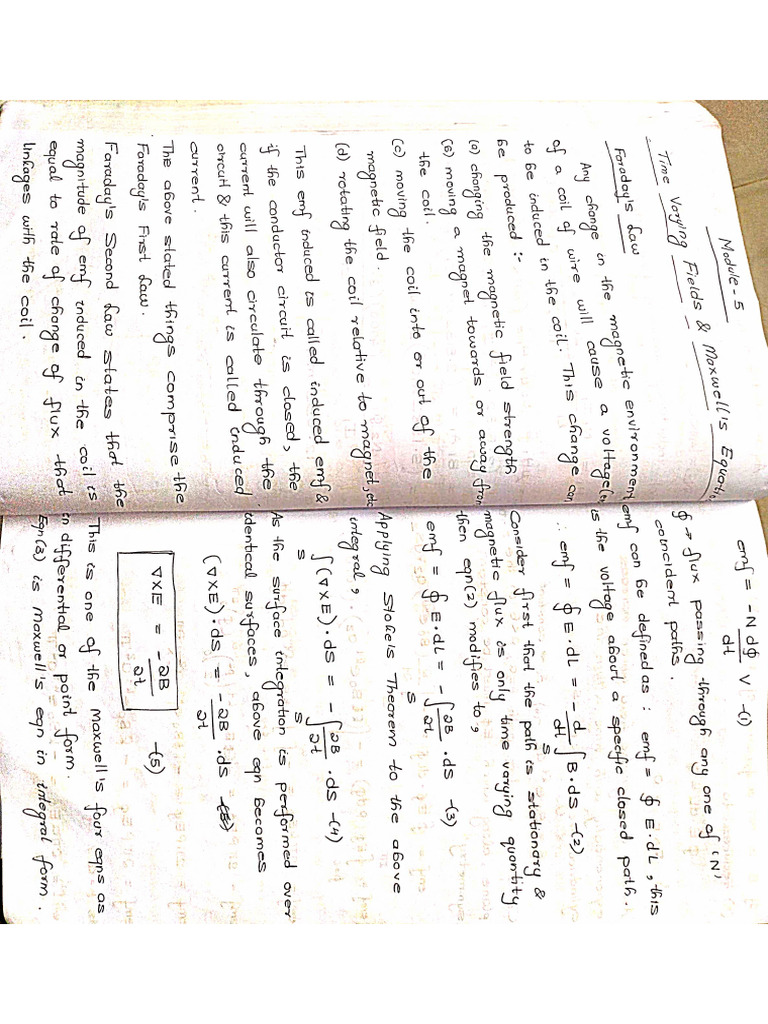 Module-5
Time Varying Fields & Maxwell's Equation
Faraday's Law
Any change in the magnetic environment
of a coil of wire will cause a voltage
to be induced in the coil. This change can
be produced :-
(a) changing the magnetic field strength
(b) moving a magnet towards or away from
the coil.
(c) moving the coil into or out of the
magnetic field.
(d) rotating the coil relative to magnet, etc
This emf induced is called induced emf &
if the conductor circuit is closed, the
current will also circulate through the
circuit & this current is called induced
current.
The above stated things comprise the
Faraday's First Law.
Faraday's Second Law states that the
magnitude of emf induced in the coil is
equal to rate of change of flux that
linkages with the coil.
emf = -N dϕ/dt V -(1)
ϕ → flux passing through any one of 'N'
coincident paths.
emf can be defined as : emf = ∮ E.dL, this
is the voltage about a specific closed path.
∴ emf = ∮ E.dL = - d/dt ∫s B.ds -(2)
Consider first that the path is stationary &
magnetic flux is only time varying quantity
then eqn(2) modifies to,
emf = ∮ E.dL = - ∫s ∂B/∂t .ds -(3)
Applying Stoke's Theorem to the above
integral,
∫s (∇×E).ds = - ∫s ∂B/∂t .ds -(4)
As the surface integration is performed over
identical surfaces, above eqn becomes
(∇×E).ds = -∂B/∂t .ds
∇×E = -∂B/∂t -(5)
This is one of the maxwell's four eqns as
in differential or point form.
Eqn(3) is Maxwell's eqn in integral form.